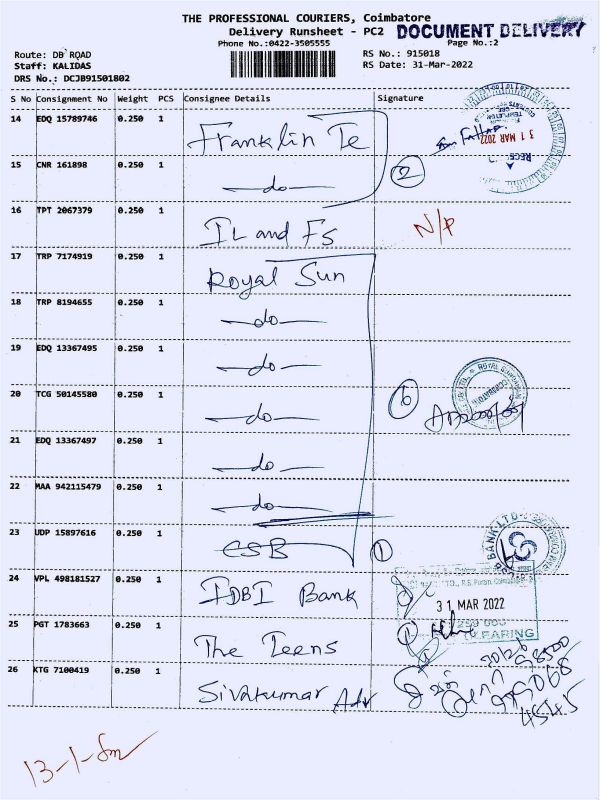 THE PROFESSIONAL COURIERS, Coimbatore
Delivery Runsheet - PC2 DOCUMENT DELIVERY
Phone No.:0422-3505555 Page No.:2
Route: DB ROAD RS No.: 915018
Staff: KALIDAS RS Date: 31-Mar-2022
DRS No.: DCJB91501802
S No Consignment No Weight PCS Consignee Details Signature
14 EDQ 15789746 0.250 1 Franklin Te
15 CNR 161898 0.250 1 —do— 2
31 MAR 2022
16 TPT 2067379 0.250 1 IL and FS N/P
17 TRP 7174919 0.250 1 Royal Sun
18 TRP 8194655 0.250 1 —do—
19 EDQ 13367495 0.250 1 —do—
20 TCG 50145580 0.250 1 —do— 6
21 EDQ 13367497 0.250 1 —do—
22 MAA 942115479 0.250 1 —do—
23 UDP 15897616 0.250 1 CSB 1
24 VPL 498181527 0.250 1 IDBI Bank
31 MAR 2022
25 PGT 1783663 0.250 1 The Teens
CLEARING
26 KTG 7100419 0.250 1 Sivakumar Adv